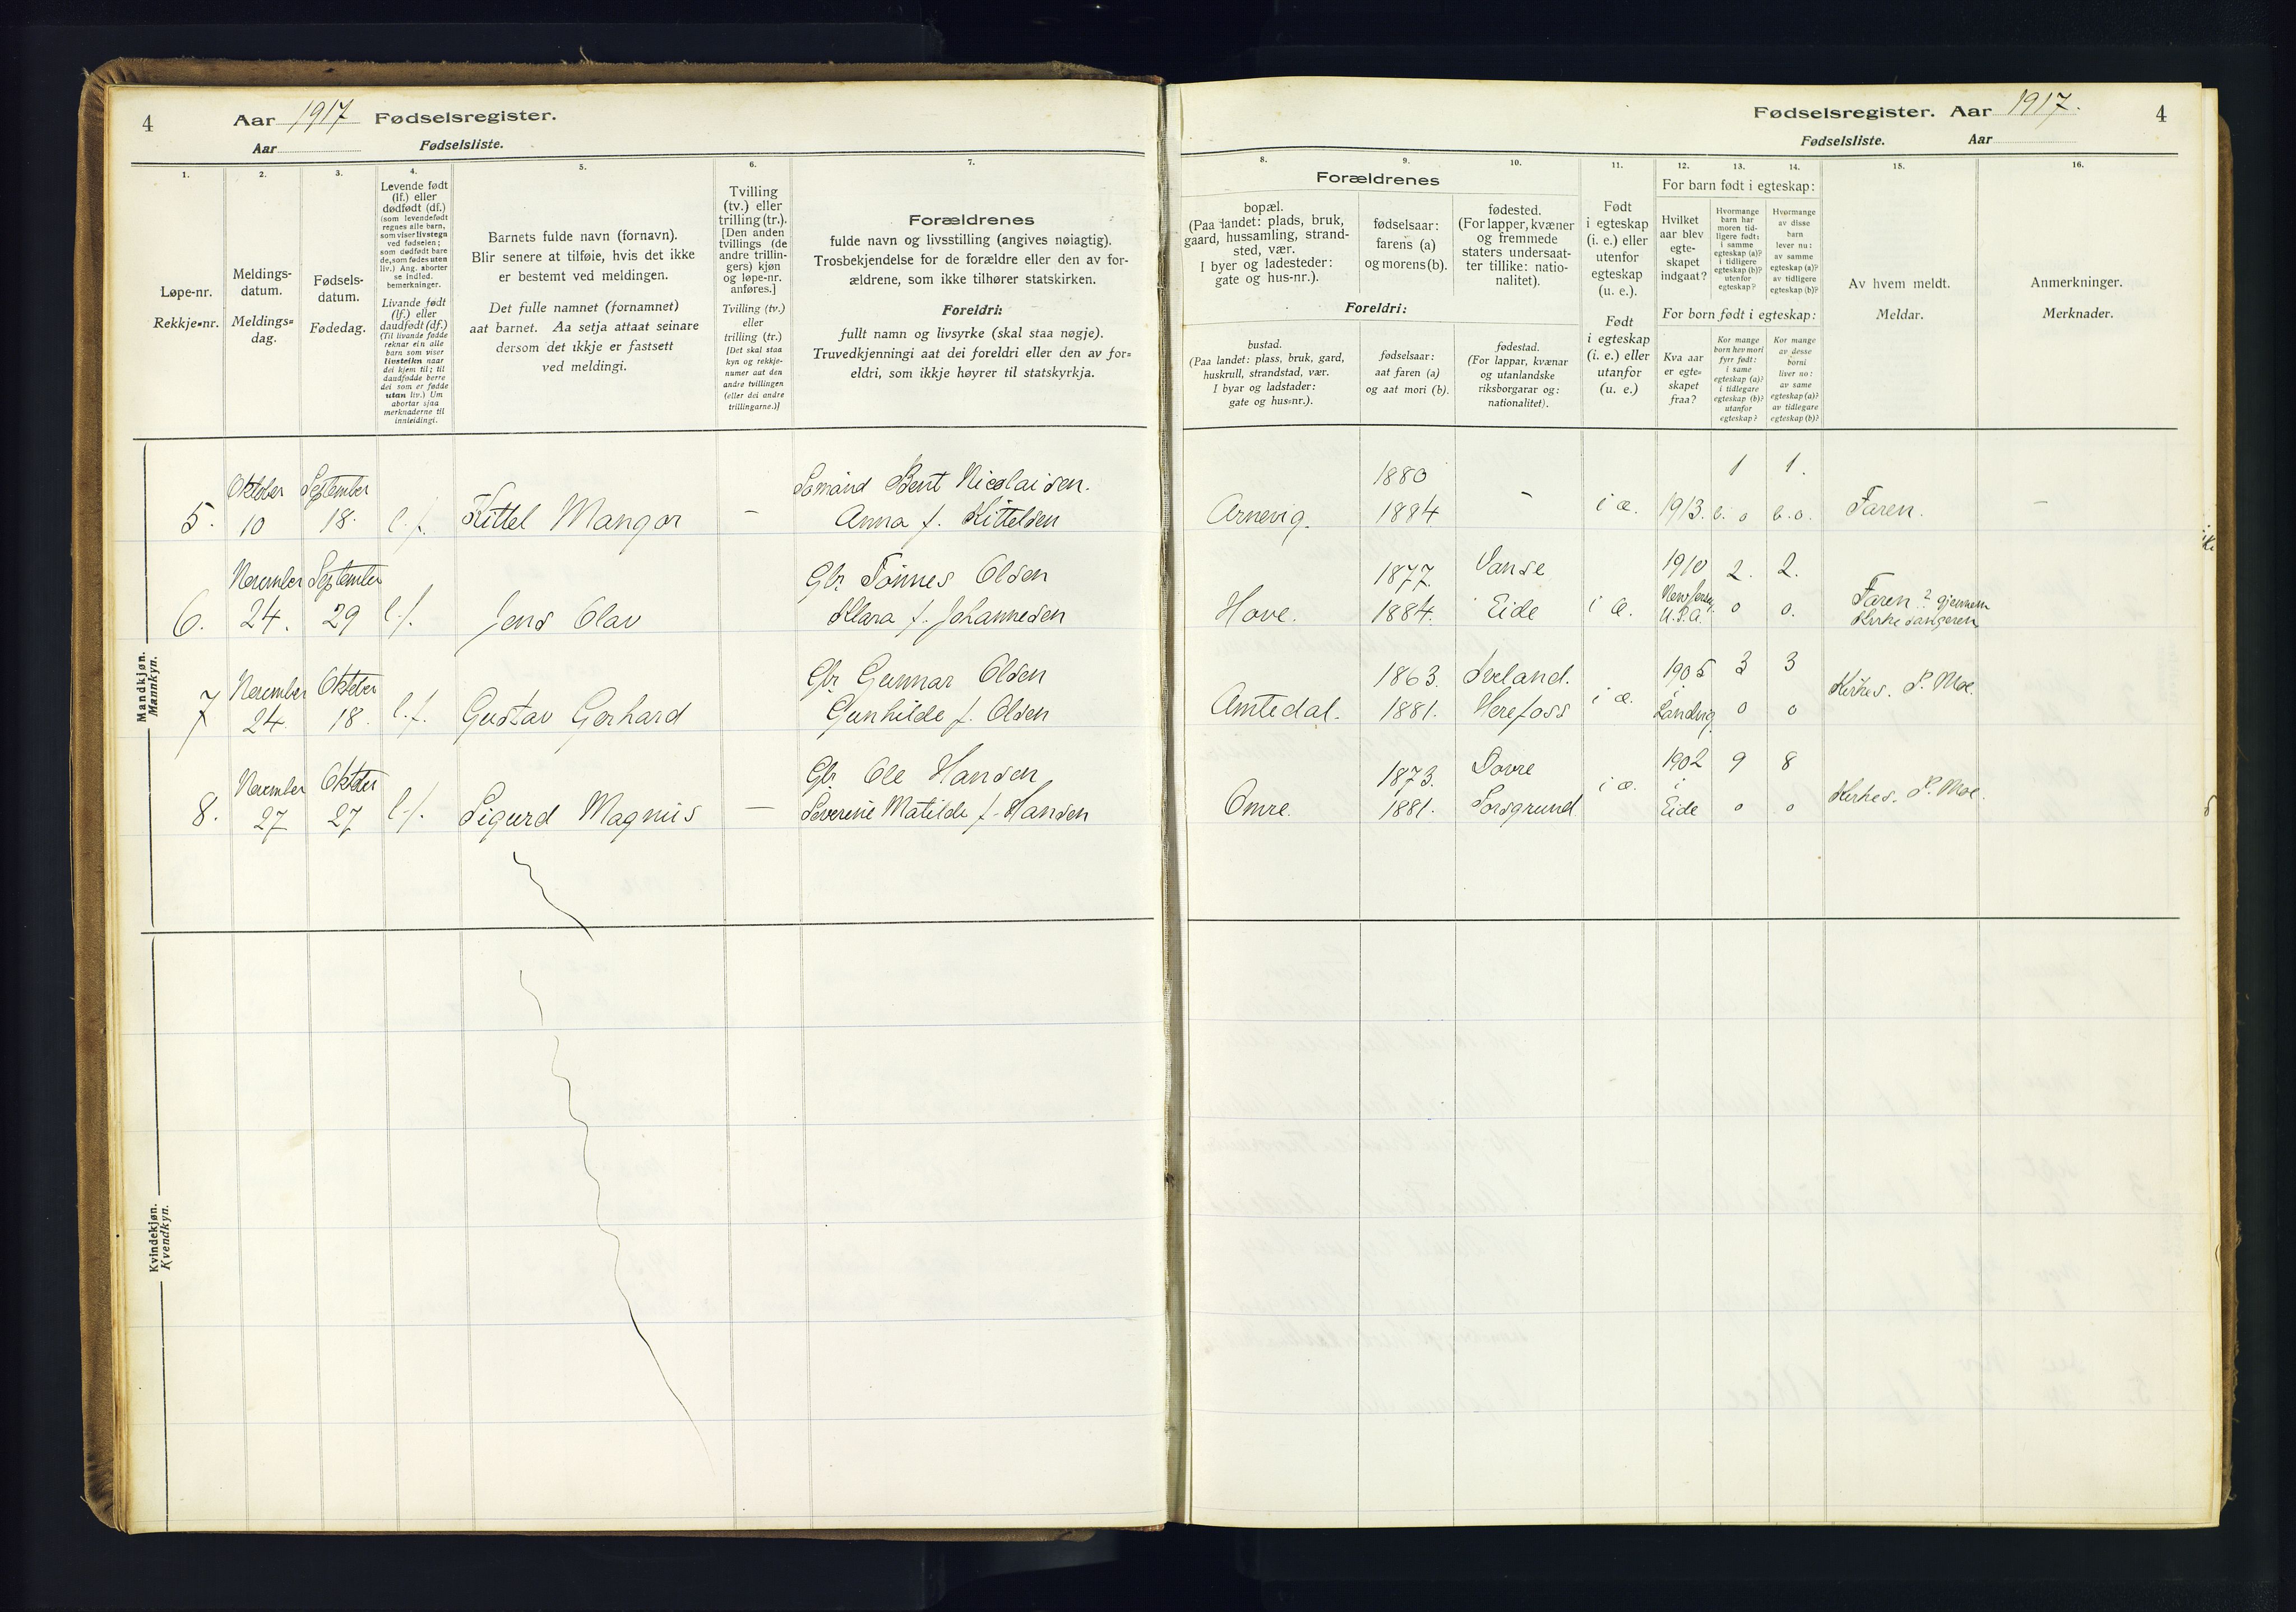 4 Aar 1917 Fødselsregister.
Aar Fødselsliste.
1.
Løpe-nr.
Rekkje=nr.
2.
Meldings-
datum.
Meldings=
dag.
3.
Fødsels-
datum.
Fødedag.
4.
Levende født
(lf.) eller
dødfødt (df.)
(som levendefødt
regnes alle barn,
som viser livstegn
ved fødselen;
som dødfødt bare
de, som fødes uten
liv.) Ang. aborter
se indled.
bemerkninger.
Livande født
(lf.) eller
daudfødt (df.)
(Til livande fødde
reknar ein alle
barn som viser
livsteikn naar
dei kjem til; til
daudfødde berre
dei som er fødde
utan liv.) Um
abortar sjaa
merknaderne til
innleidingi.
5.
Barnets fulde navn (fornavn).
Blir senere at tilføie, hvis det ikke
er bestemt ved meldingen.
Det fulle namnet (fornamnet)
aat barnet. Aa setja attaat seinare
dersom det ikkje er fastsett
ved meldingi.
6.
Tvilling
(tv.) eller
trilling (tr.).
[Den anden
tvillings (de
andre trillin-
gers) kjøn
og løpe-nr.
anføres.]
Tvilling (tv.)
eller
trilling (tr.)
[Det skal staa
kyn og rekkje-
numer aat den
andre tvillingen
(eller dei andre
trillingarne.)]
7.
Forældrenes
fulde navn og livsstilling (angives nøiagtig).
Trosbekjendelse for de forældre eller den av for-
ældrene, som ikke tilhører statskirken.
Foreldri:
fullt namn og livsyrke (skal staa nøgje).
Truvedkjenningi aat dei foreldri eller den av for=
eldri, som ikkje høyrer til statskyrkja.
Mandkjøn.
Mannkyn.
Oktober September Sømand Bent Nicolaisen.
5. 10 18. l.f. Kittel Mangor — Anna f. Kittelsen
November September Gbr Tønnes Olsen
6. 24. 29 l.f. Jens Olav Klara f. Johannesen
November Oktober Gbr Gunnar Olsen
7 24. 18. l.f. Gustav Gerhard Gunhilde f. Olsen
November Oktober Gbr. Ole Hansen
8. 27 27 l.f. Sigurd Magnus — Severine Matilde f. Hansen
Kvindekjøn.
Kvendkyn.
Fødselsregister. Aar 1917. 4
Fødselsliste. Aar
Forældrenes
8.
bopæl.
(Paa landet: plads, bruk,
gaard, hussamling, strand-
sted, vær.
I byer og ladesteder:
gate og hus-nr.).
9.
fødselsaar:
farens (a)
og morens (b).
10.
fødested.
(For lapper, kvæner
og fremmede
staters undersaat-
ter tillike: natio-
nalitet).
Foreldri:
bustad.
(Paa landet: plass, bruk, gard,
huskrull, strandstad, vær.
I byar og ladstader:
gate og hus=nr.).
fødselsaar:
aat faren (a)
og aat mori (b).
fødestad.
(For lappar, kvænar
og utanlandske
riksborgarar og:
nationalitet).
11.
Født
i egteskap
(i. e.) eller
utenfor
egteskap
(u. e.).
Født
i egteskap
(i. e.) eller
utanfor
(u. e.)
For barn født i egteskap:
12.
Hvilket
aar blev
egte-
skapet
indgaat?
13.
Hvormange
barn har
moren tid-
ligere født:
i samme
egteskap (a)?
i tidligere
egteskap (b)?
utenfor
egteskap?
14.
Hvormange
av disse
barn
lever nu:
av samme
egteskap (a)?
av tidligere
egteskap (b)?
For born født i egteskap:
Kva aar
er egte=
skapet
fraa?
Kor mange
born hev mori
fyrr født:
i same
egteskap (a)?
i tidlegare
egteskap (b)?
utanfor
egteskap?
Kor mange
av desse
borni
liver no:
av same
egteskap (a)?
av tidlegare
egteskap (b)?
15.
Av hvem meldt.
Meldar.
16.
Anmerkninger.
Merknader.
1880 1 1.
Arnevig. 1884 - i æ. 1913. b. o b. o. Faren. —
1877. Vanse 1910 2. 2.
Hove. 1884. Eide i æ. New Jersey U.S.A. o o. Faren ? gjennem
Kirkesangeren
1863. Iveland. 1905 3 3
Amtedal. 1881. Herefoss i æ. i Landvig o o Kirkes. P. Moe.
1873. Dovre 1902 9 8
Omre. 1881. Porsgrund i æ. i Eide o o Kirkes. P. Moe.